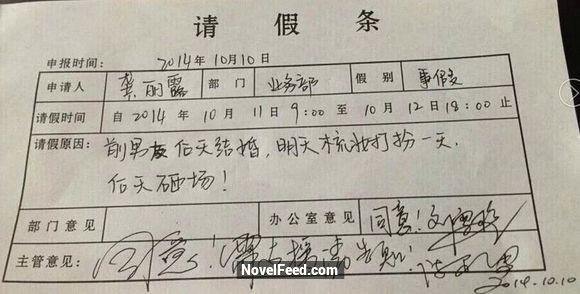 请假条
申报时间： 2014年10月10日
申请人 龚丽露 部门 业务部 假别 事假
请假时间 自2014年10月11日9:00至10月12日18:00止
请假原因： 前男友后天结婚,明天梳妆打扮一天.
后天砸场!
部门意见 办公室意见 同意!
主管意见： 同意!
2014.10.10
NovelFeed.com